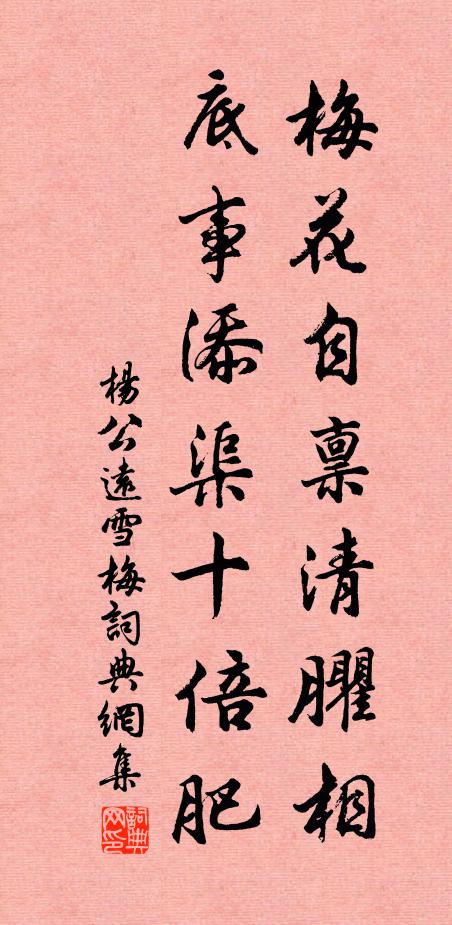 梅花自禀清臞相
底事添渠十倍肥
楊公遠雪梅詞典網集
詞典網印